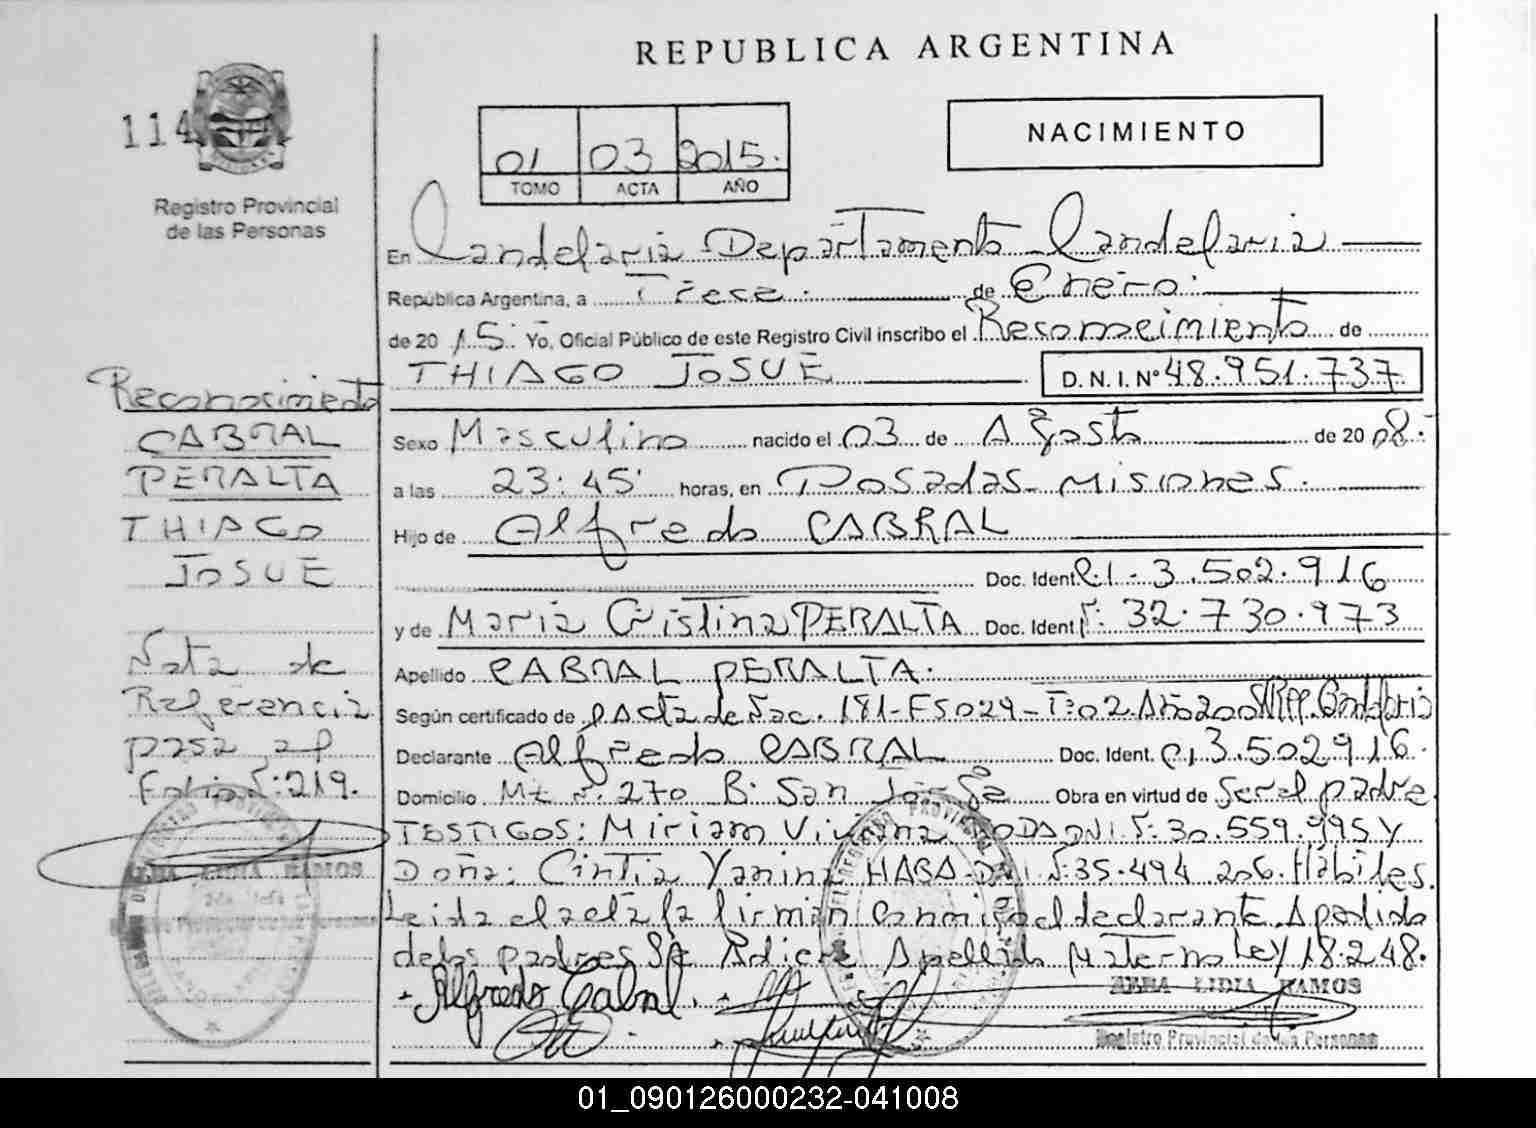 REPUBLICA ARGENTINA
114
Registro Provincial
de las Personas
01 03 2015.
TOMO ACTA AÑO
NACIMIENTO
En Candelaria Departamento Candelaria
República Argentina, a Trece. de Enero.
de 2015. Yo, Oficial Público de este Registro Civil inscribo el Reconocimiento de
THIAGO JOSUE D.N.I. Nº 48.951.737
Sexo Masculino nacido el 03 de Agosto de 2008.
a las 23:45' horas, en Posadas-Misiones.
Hijo de Alfredo CABRAL
Doc. Ident. C.I-3.502.916
y de Maria Cristina PERALTA Doc. Ident. Nº: 32.730.973
Apellido CABRAL PERALTA.
Según certificado de Acta de Nac. 181-Fº5029-Tº:02 Año
Declarante Alfredo CABRAL Doc. Ident. CI 3.502.916.
Domicilio Mz Nº. 270 Bº. San Jorge Obra en virtud de Ser el padre
TESTIGOS: Miriam Viviana DNI. Nº: 30.559.995 Y
Doña: Cintia Yanina DNI. Nº:35.494.206. Hábiles.
Leida el acta la firman conmigo el declarante. A pedido
de los padres Se Adiciona Apellido Materno Ley 18.248.
Alfredo Cabral
LIDIA RAMOS
Registro Provincial de las Personas
Reconocimiento
CABRAL
PERALTA
THIAGO
JOSUE
Nota de
Referencia
pasa al
Folio Nº:219.
LIDIA RAMOS
01_090126000232-041008